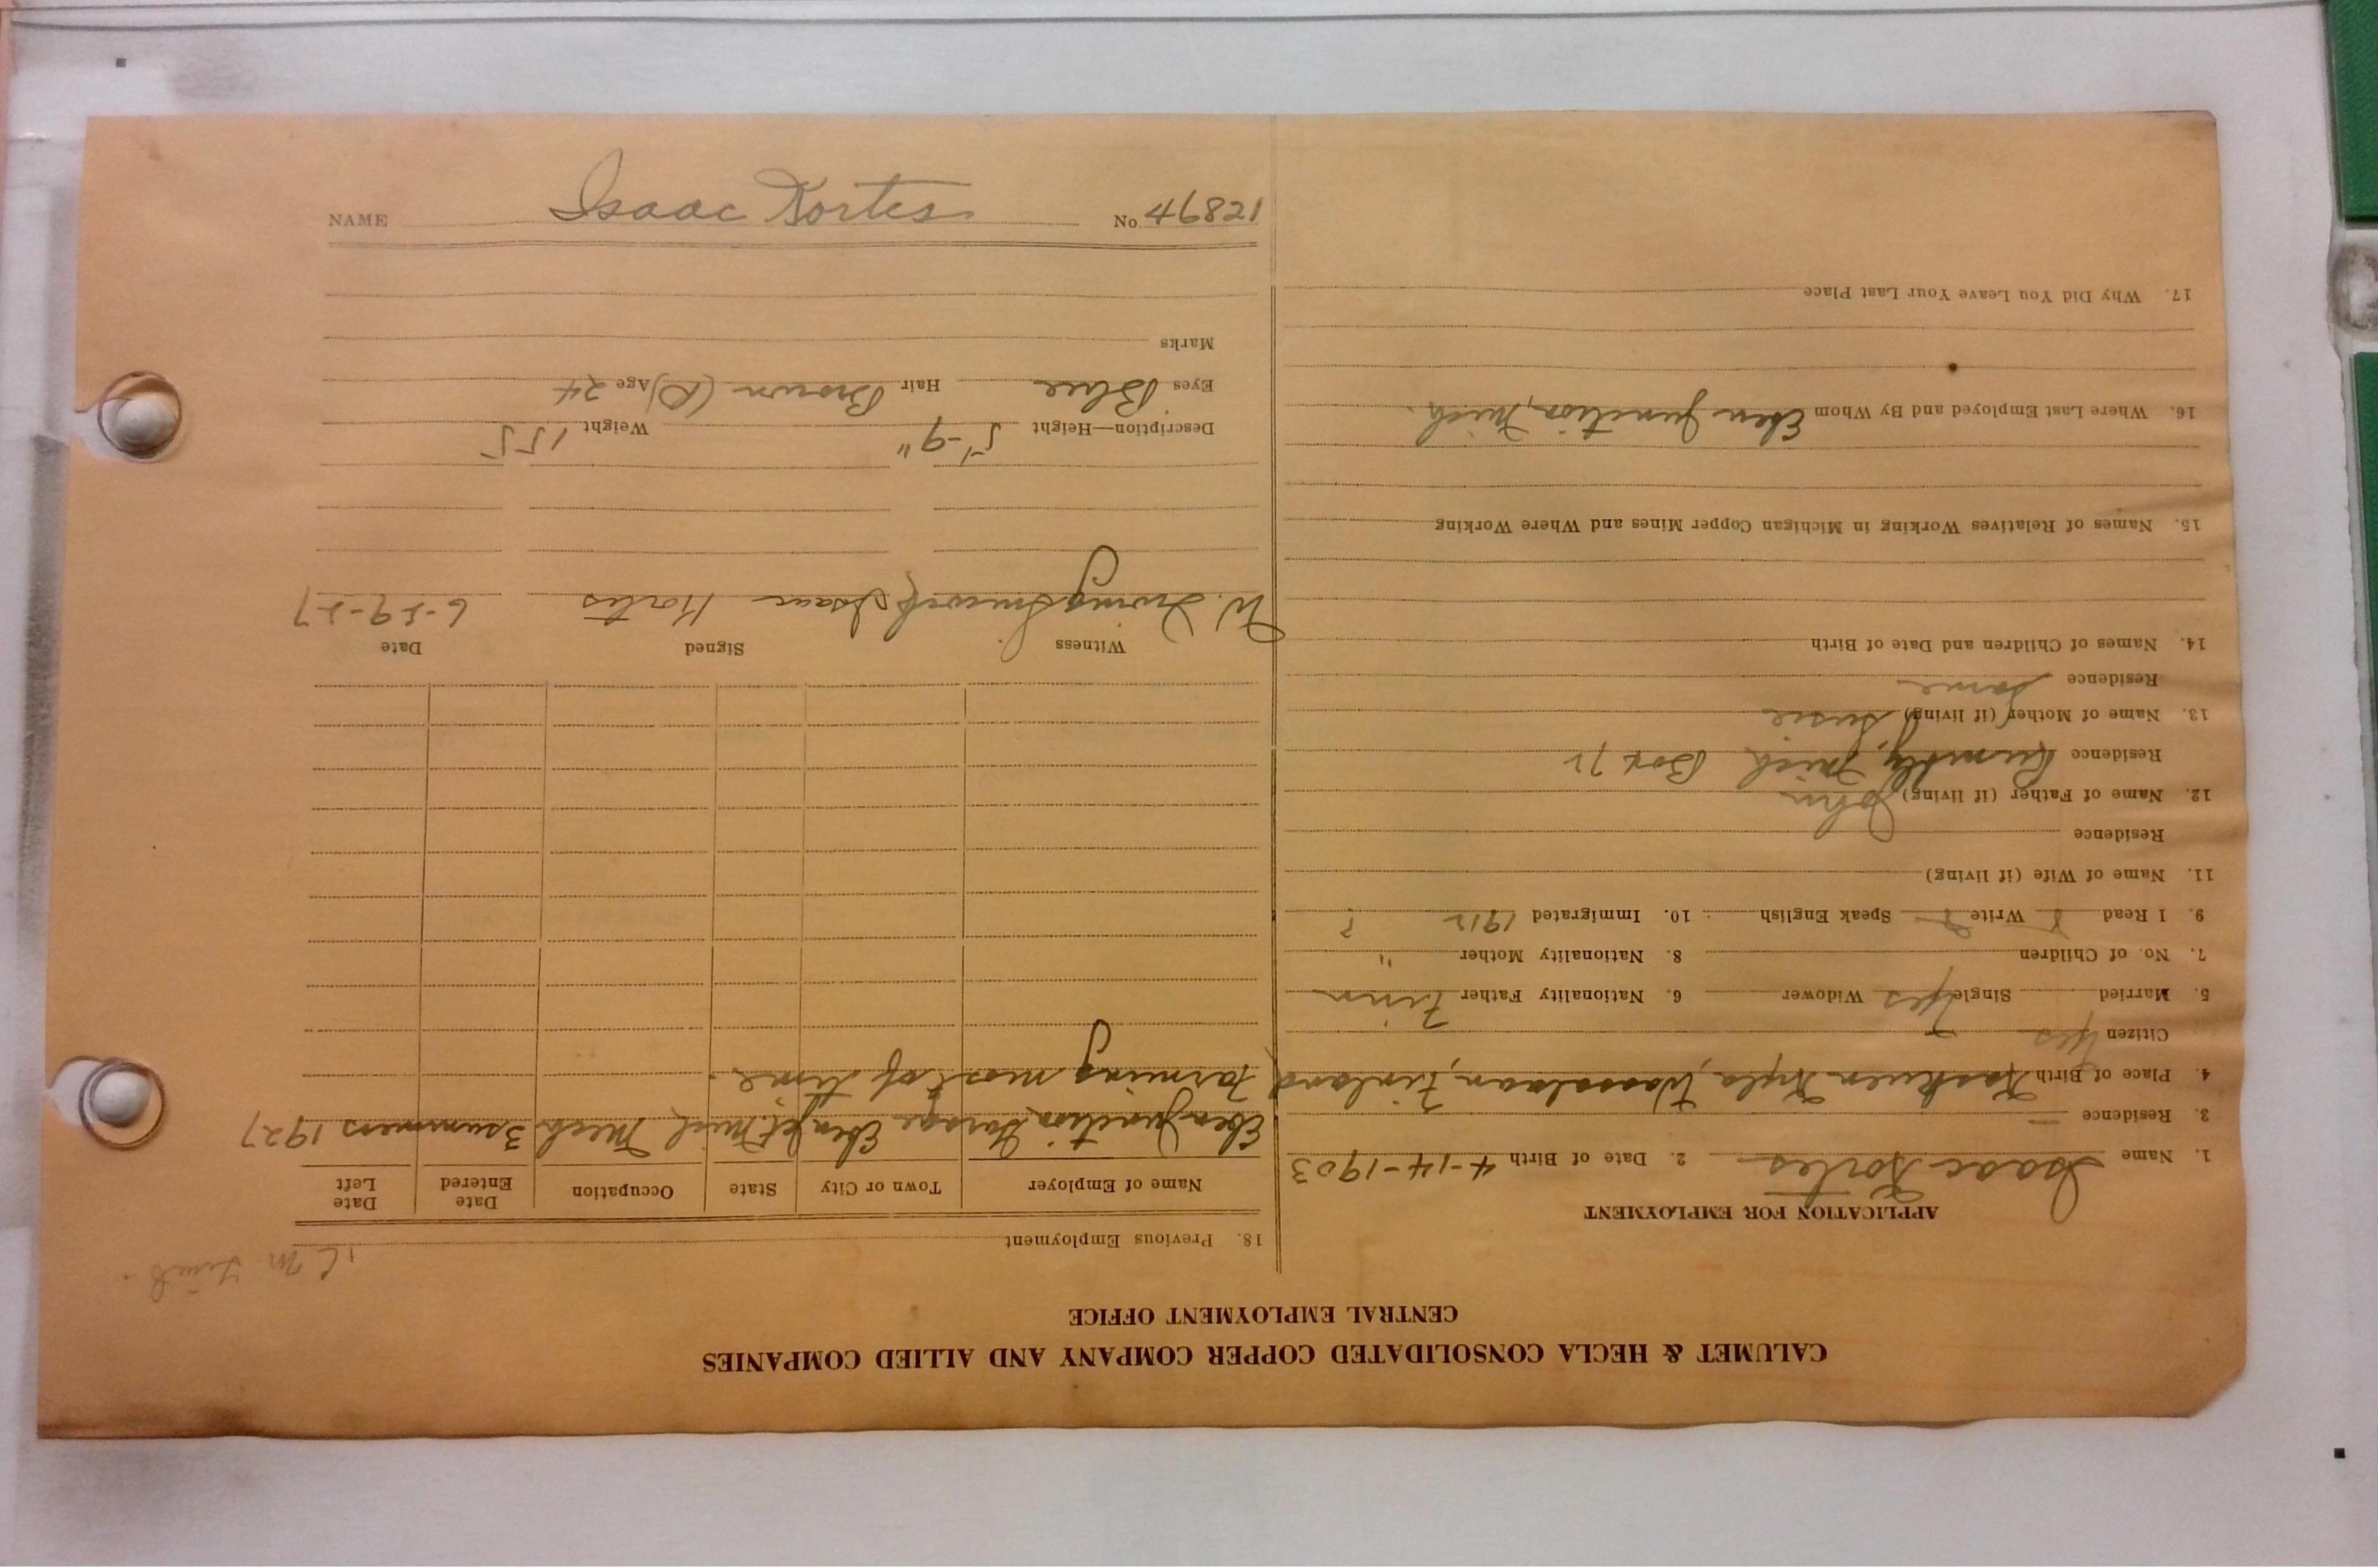 CALUMET & HECLA CONSOLIDATED COPPER COMPANY AND ALLIED COMPANIES
CENTRAL EMPLOYMENT OFFICE
APPLICATION FOR EMPLOYMENT
1. Name Isaac Kortes 2. Date of Birth 4-14-1903
3. Residence
4. Place of Birth Kyla, Finland
Citizen Yes
5. Married Single Yes Widower 6. Nationality Father Finn
7. No. of Children 8. Nationality Mother "
9. I Read Y Write Y Speak English 10. Immigrated 1912 ?
11. Name of Wife (if living)
Residence
12. Name of Father (if living) John
Residence Rumely, Mich Box 72
13. Name of Mother (if living) Susie
Residence Same
14. Names of Children and Date of Birth
15. Names of Relatives Working in Michigan Copper Mines and Where Working
16. Where Last Employed and By Whom Eben Junction, Mich.
17. Why Did You Leave Your Last Place
18. Previous Employment
Name of Employer Town or City State Occupation Date Entered Date Left
Eben Junction Garage Eben Jct Mich Mech 3 summers 1927
Farming most of time.
Witness Signed Date
W. Irving Isaac Kortes 6-29-27
Description—Height 5'-9" Weight 155
Eyes Blue Hair Brown (R) Age 24
Marks
NAME Isaac Kortes No. 46821